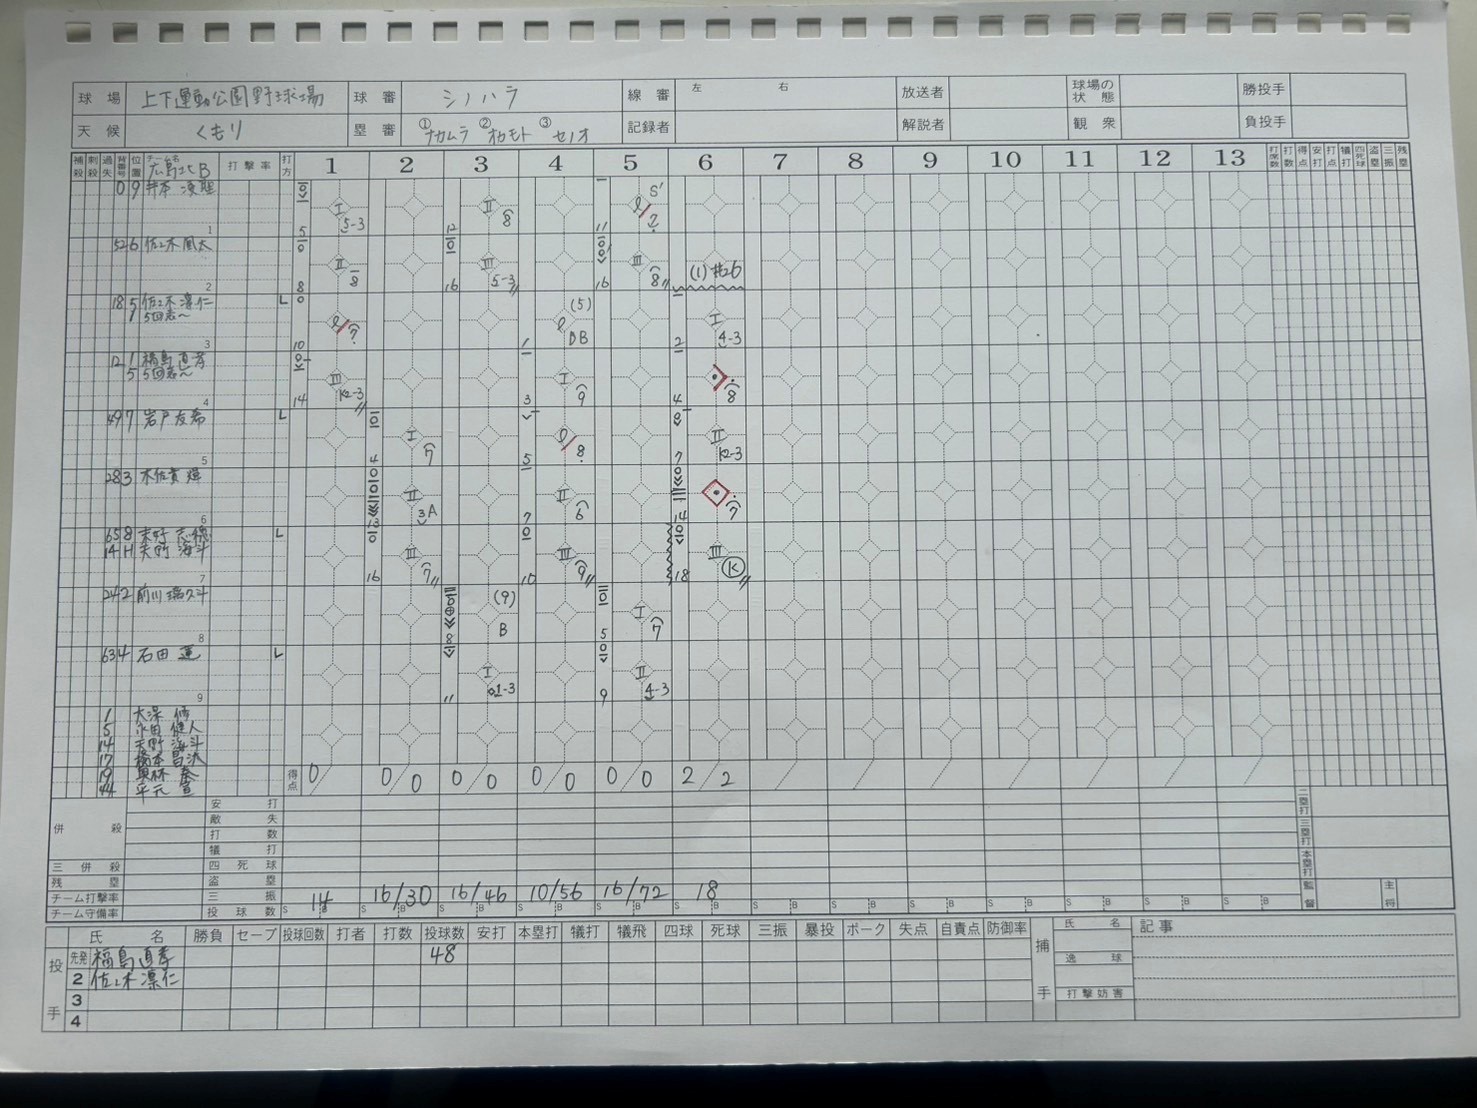 球場 上下運動公園野球場 球審 シノハラ 線審 左 右 放送者 球場の状態 勝投手
天候 くもり 塁審 ①ナカムラ ②オカモト ③セノオ 記録者 解説者 観衆 負投手
補殺 刺殺 過失 背番号 位置 チーム名 広島北B 打撃率 打方 1 2 3 4 5 6 7 8 9 10 11 12 13 打席数 打数 得点 安打 打点 犠打 四死球 盗塁 三振 残塁
0 9 井本
I 5-3 II 8 S' 2
5 12 11
1
52 6 佐々木 風太
II 8 III 5-3 III 8 (1) #26
8 16 16
2
18 5 佐々木 凛仁 L
1 5回表〜
7 (5) DB I 4-3
10 1 2
3
12 1 福島 直孝
5 5回表〜
III K2-3 I 9 8
14 3 4
4
49 7 岩戸 友希 L
I 7 8 II K2-3
4 5 7
5
28 3 木佐貫
II 3A II 6 7
13 7 14
6
65 8 L
14 H 天野 海斗
III 7 III 9 III K
16 10 18
7
24 2 前川
(9) B I 7
8 5
8
63 4 石田 蓮 L
I 1-3 II 4-3
11 9
9
1 大澤 修
5 永田 健人
14 天野 海斗
17 橋本
19 奥林 泰
44 平元 宣
得点 0/ 0/0 0/0 0/0 0/0 2/2
安打
敵失
打数
犠打
四死球
盗塁
三振
投球数 14 16/30 16/46 10/56 16/72 18
S B S B S B S B S B S B S B S B S B S B S B S B S B
併殺
三併殺
残塁
チーム打撃率
チーム守備率
二塁打
三塁打
本塁打
監督 主将
投手 氏名 勝負 セーブ 投球回数 打者 打数 投球数 安打 本塁打 犠打 犠飛 四球 死球 三振 暴投 ボーク 失点 自責点 防御率 捕手 氏名 記事
先発 福島 直孝 48
2 佐々木 凛仁 逸球
3 打撃妨害
4